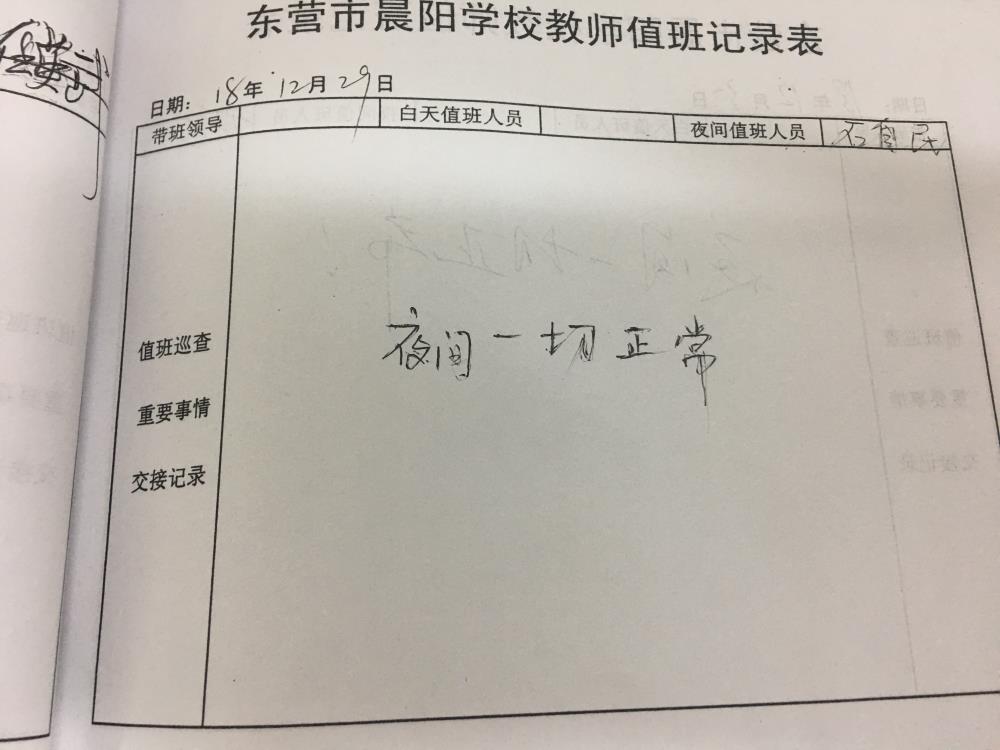 东营市晨阳学校教师值班记录表
日期: 18年 12月 29日
带班领导 白天值班人员 夜间值班人员 石 民
值班巡查
夜间一切正常
重要事情
交接记录